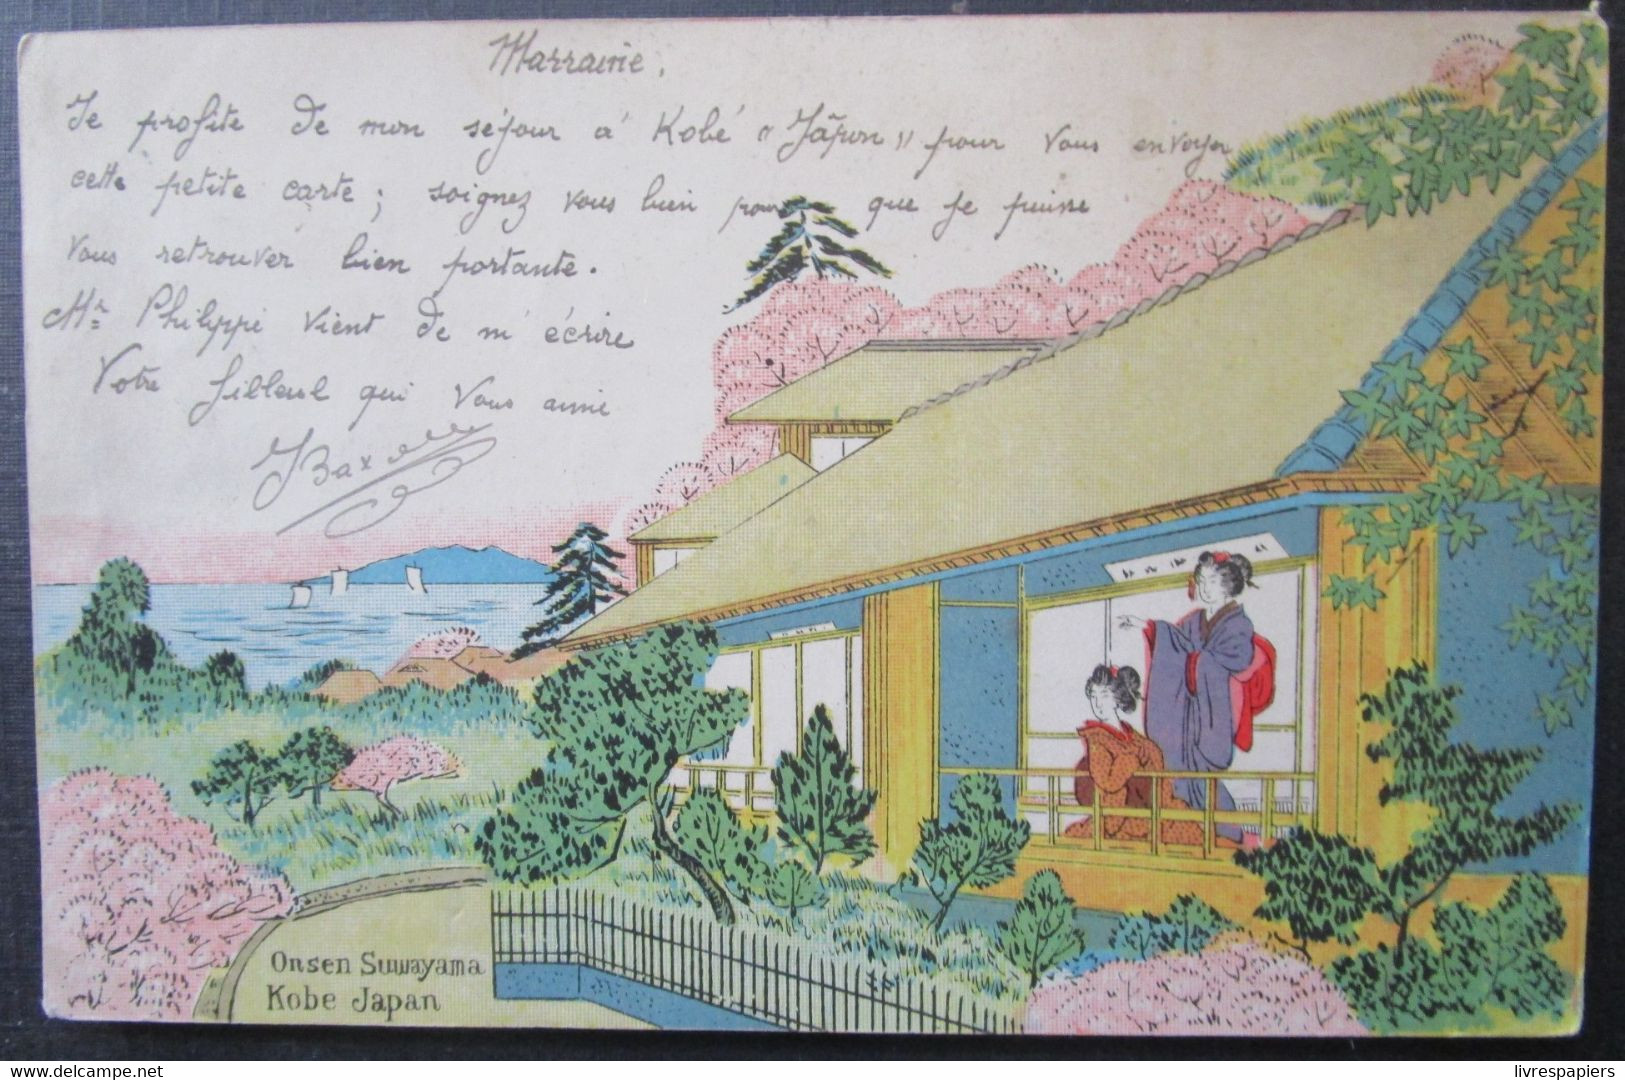 Marraine.
Je profite de mon séjour à Kobé "Jãpon" pour vous envoyer
cette petite carte; soignez vous bien pour que je puisse
vous retrouver bien portante.
Mr Philippi vient de m'écrire
Votre filleul qui vous aime
Onsen Suwayama
Kobe Japan
delcampe.net
livrespapiers